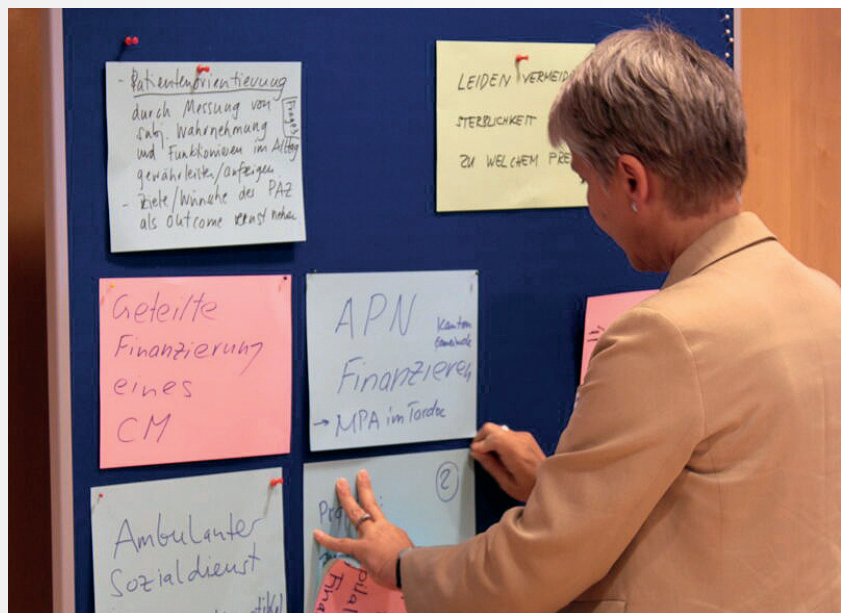 - Patientenorientierung
durch Messung von
subj. Wahrnehmung
und Funktionieren im Alltag
gewährleisten/anzeigen
- Ziele/Wünsche der PAZ
als outcome ernst nehmen
LEIDEN VERMEID
STERBLICHKEIT
ZU WELCHEM PRE
Geteilte
Finanzierung
eines
CM
APN
Kanton
Gemeinde
Finanzieren
→ MPA im Tarda
2
Ambulanter
Sozialdienst